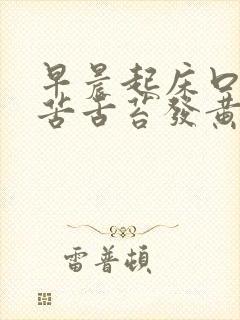 早晨起床口
苦舌苔發黃
雷普頓